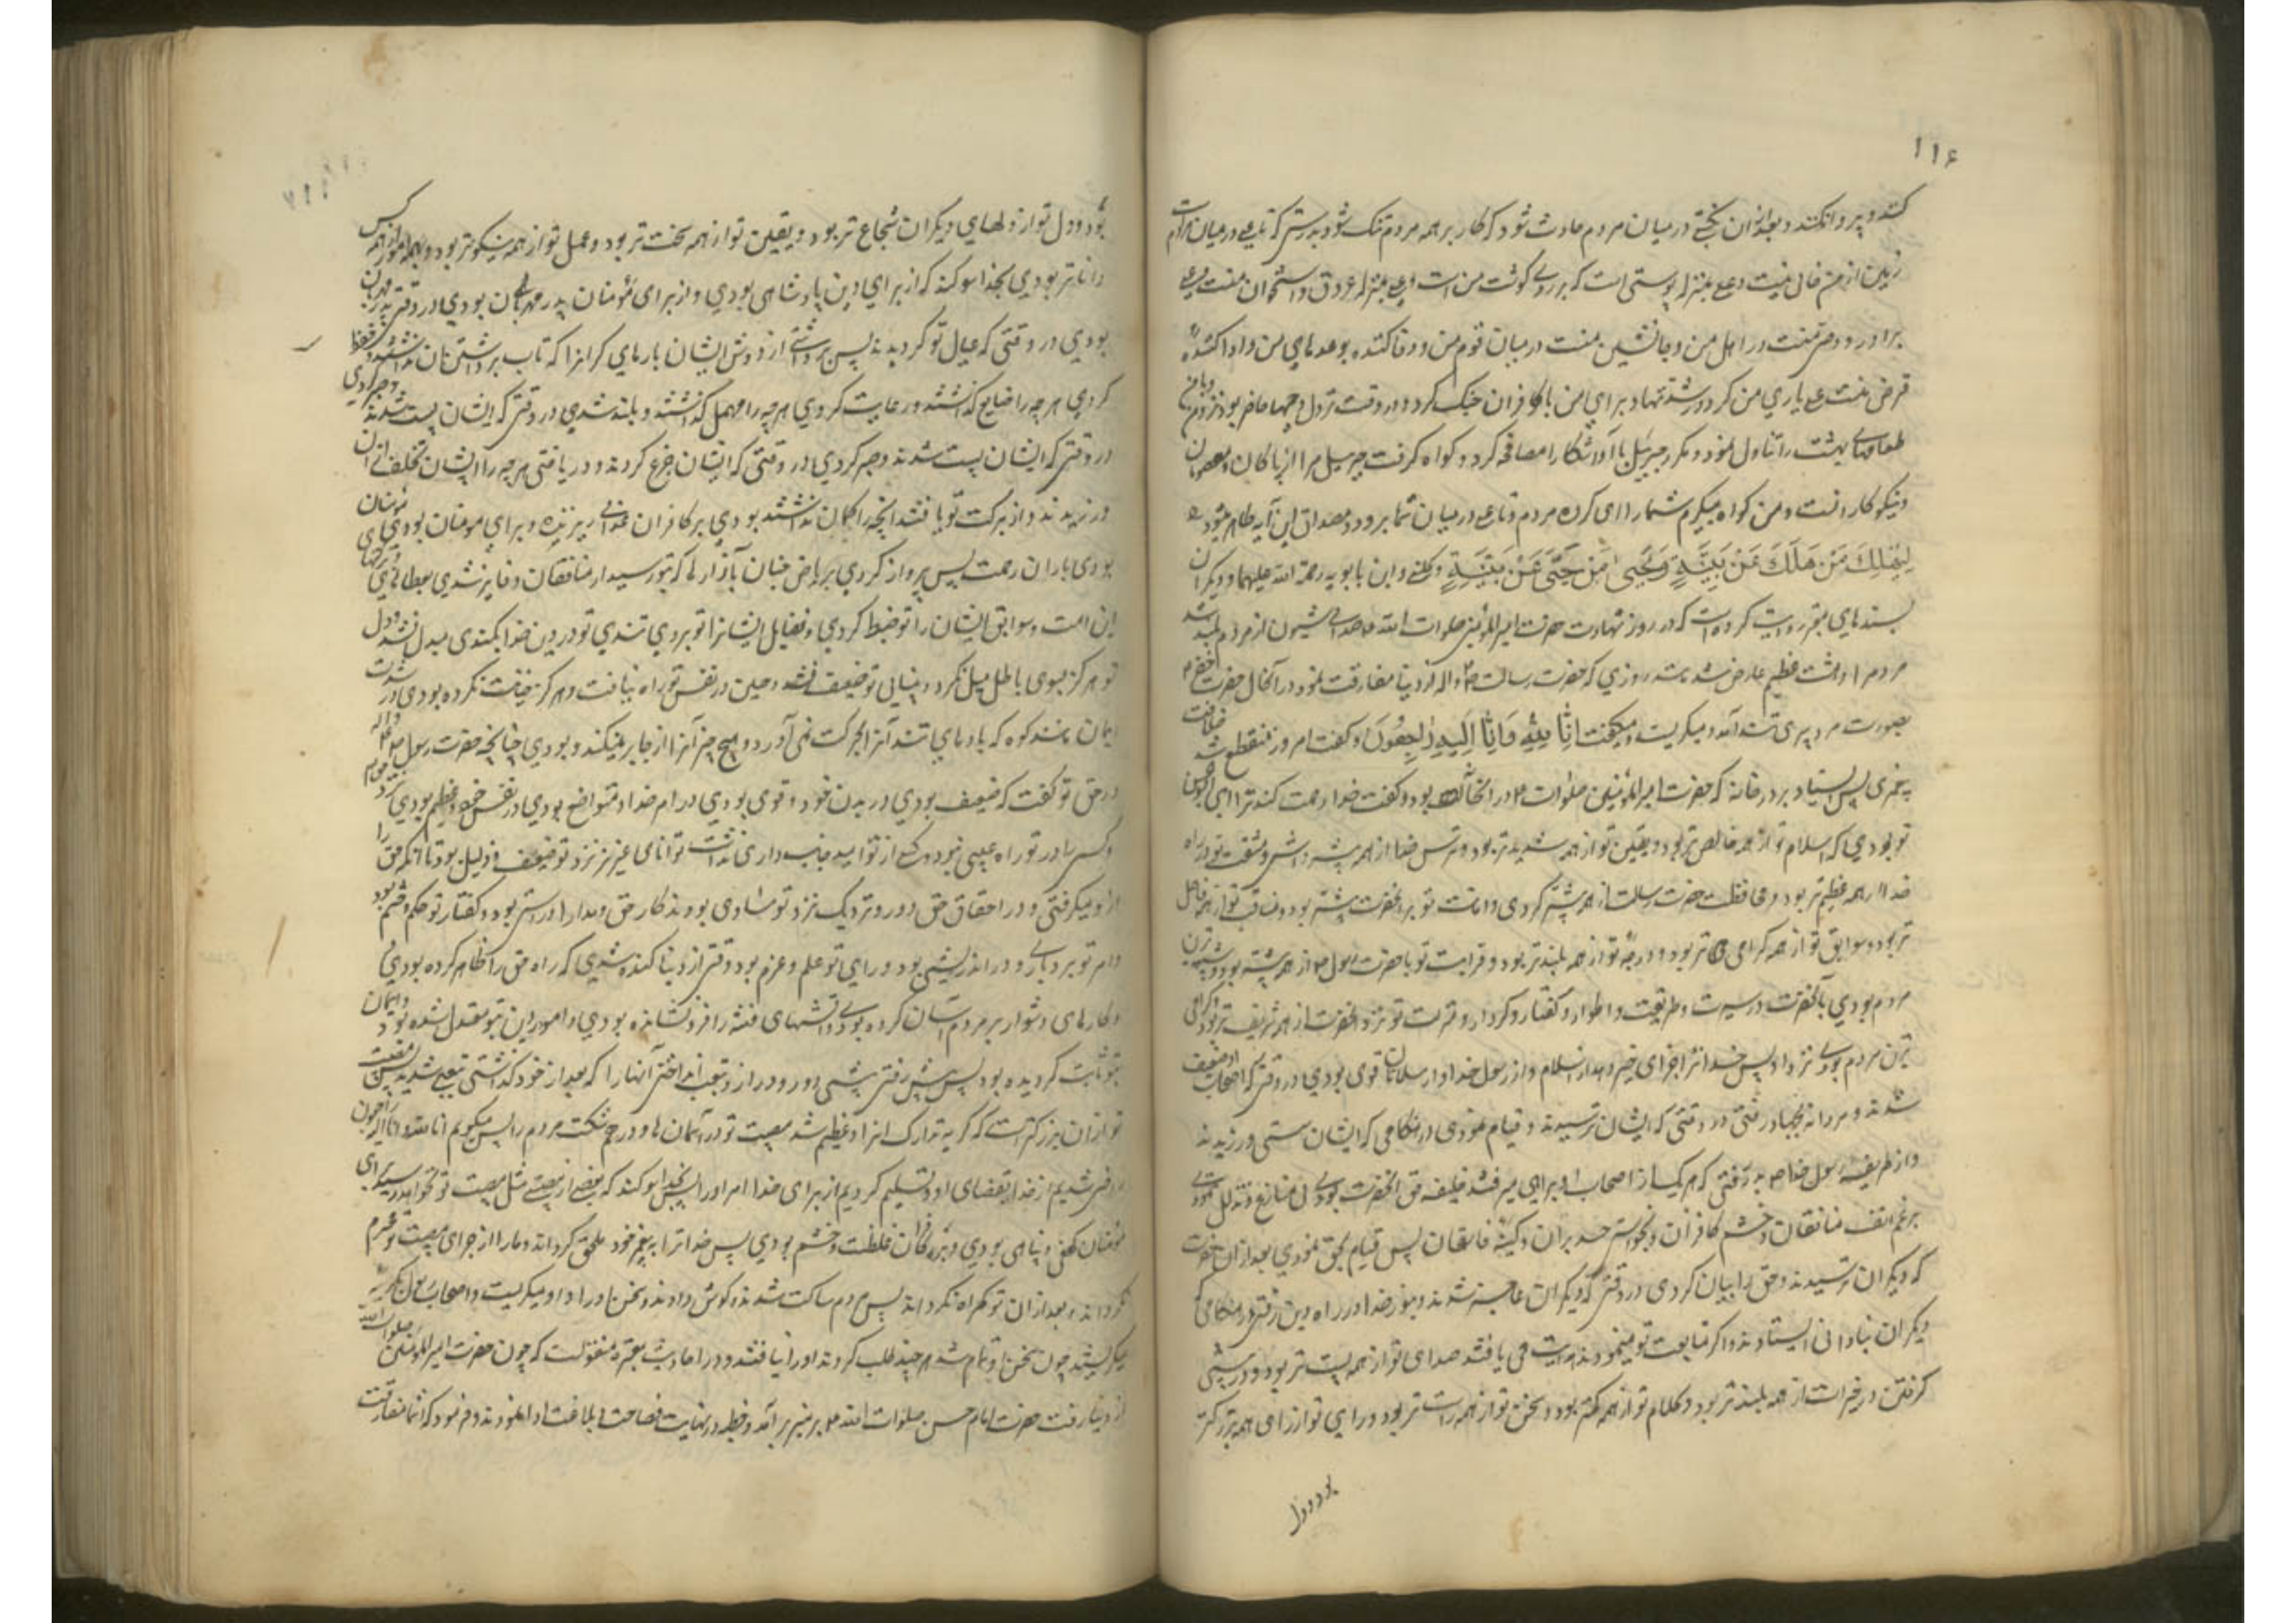 ۱۱۶
کنند و پروا نکنند و بعد از آن در میان مردم حادث شود که کار بر همه مردم تنک شود بدرستی که علی در میان
زمین از من خالی نیست و علی بمنزله پوستی است که بر روی کوشت من است علی بمنزله عروق و استخوان منست علی
برادر و وصی منست در اهل من و جانشین منست در میان قوم من و وفا کننده بوعدهای من و ادا کننده
قرض منست علی یاری من کرد در شدتها و برای من با کافران جنک کرد و در وقت نزول وحیها حاضر بود نزد من و با من
طعامهای بهشت را تناول نمود و مکرر جبرئیل با او آشکارا مصافحه کرد و کواه کرفت جبرئیل مرا از پاکان و معصومان
و نیکوکارانست و من کواه میکیرم شما را ای کروه مردم و تا علی در میان شما بود مصداق این آیه ظاهر شود
لِيَهْلِكَ مَنْ هَلَكَ عَنْ بَيِّنَةٍ وَيَحْيَى مَنْ حَيَّ عَنْ بَيِّنَةٍ و کلینی و ابن بابویه رحمة الله علیهما و دیکران
بسندهای معتبر روایت کرده‌است که در روز شهادت حضرت امیرالمؤمنین صلوات الله علیه صدای شیون از مردم بلند شد
مردم را دهشت عظیم عارض شد مانند روزی که حضرت رسالت ص و آله از دنیا مفارقت نمود در آنحال حضرت خضر
بصورت مرد پیری آمد و میکریست و میکفت إِنَّا لِلَّهِ وَإِنَّا إِلَيْهِ رَاجِعُونَ و کفت امروز منقطع شد خلافت
پیغمبری پس ایستاد بر در خانه که حضرت امیرالمؤمنین صلوات ع در آنخانه بود و کفت خدا رحمت کند ترا ای ابوالحسن
تو بودی که اسلام تو از همه خالص‌تر بود و یقین تو از همه شدیدتر بود و ترس خدا از همه بیشتر داشتی و مشقت تو در راه
خدا از همه عظیم‌تر بود و محافظت حضرت رسالت از همه بیشتر کردی و امانت تو بر آنحضرت بیشتر بود و مناقب تو از همه فاضل
تر بود و سوابق تو از همه کرامی تر بود و درجهٔ تو از همه بلندتر بود و قرابت تو با حضرت رسول ص از همه بیشتر بود و شبیه‌ترین
مردم بودی بآنحضرت در سیرت و طریقت و اطوار و کفتار و کردار و منزلت تو نزد آنحضرت از همه شریف‌تر بود و کرامی
ترین مردم بودی نزد او پس خدا ترا جزای خیر دهد از اسلام و از رسول خدا و از مسلمانان قوی بودی در وقتی که اصحاب او ضعیف
شدند و مردانه بجهاد رفتی در وقتی که ایشان ترسیدند و قیام نمودی در هنکامی که ایشان سستی ورزیدند
و از طریقهٔ رسول خدا ص بدر نرفتی که هر یک از اصحاب او براهی میرفتند خلیفه حق آنحضرت بودی بی منازع
برغم انف منافقان و خشم کافران و حسد بران و کینهٔ فاسقان پس قیام بحق نمودی بعد از آن حضرت
که دیکران ترسیدند و حق را بیان کردی در وقتی که دیکران عاجز شدند و بنور خدا در راه دین رفتی در هنکامی که
دیکران بنادانی ایستادند و اکر متابعت تو مینمودند هدایت می یافتند صدای تو از همه پست تر بود و در پیشی
کرفتن در خیرات از همه بلندتر بود و کلام تو از همه کمتر بود و سخن تو از همه راست تر بود و رای تو از رای همه بزرکتر
بود و دل
بود و دل تو از دلهای دیکران شجاع تر بود و یقین تو از همه سخت تر بود و عمل تو از همه نیکوتر بود و بهمه امور از همه کس
داناتر بودی بخدا سوکند که از برای دین پادشاهی بودی و از برای مؤمنان پدر مهربان بودی در وقتی
بودی در وقتی که عیال تو کردیدند پس برداشتی از دوش ایشان بارهای کرانرا که تاب برداشتن آن نداشتند و حفظ
کردی هر چه را ضایع کذاشتند و رعایت کردی هر چه را مهمل کذاشتند و بلند شدی در وقتی که ایشان پست شدند
در وقتی که ایشان پست شدند و صبر کردی در وقتی که ایشان جزع کردند و دریافتی هر چه را ایشان تخلف از آن
ورزیدند و از برکت تو یافتند آنچه را کمان نداشتند بودی بر کافران عذابی ریزنده و برای مومنان بودی
بودی باران رحمت پس پرواز کردی بریاض جنان با آزارها که بتو رسید از منافقان و فایز شدی بعطاهای
این امت و سوابق ایشان را تو ضبط کردی و فضایل ایشانرا تو بردی تندی تو در دین خدا بکندی مبدل نشد و دل
تو هرکز بسوی باطل میل نکرد و بینایی تو ضعیف نشد و جبن در نفس تو راه نیافت و هرکز خیانت نکرده بودی در
ایمان مانند کوه که بادهای تند آنرا بحرکت نمی‌آورد و هیچ چیز آنرا از جا بر نمیکند و بودی چنانچه حضرت رسول ص
در حق تو کفت که ضعیف بودی در بدن خود و قوی بودی در امر خدا و متواضع بودی در نفس خود و عظیم بودی نزد خدا
و کسی را در تو راه عیبی نبود و کسی از تو امید جانب داری نداشت توانای عزیز نزد تو ضعیف و ذلیل بود تا آنکه حق را
از او میکرفتی و در احقاق حق دور و نزدیک نزد تو مساوی بودند کار حق و مدارا و راستی بود و کفتار تو حکم و حتم بود
و امر تو بردباری و دوراندیشی بود و رای تو علم و عزم بود وقتی از دنیا کنده شدی که راه حق را ظاهر کرده بودی
و کارهای دشوار بر مردم آسان کرده بودی و آتشهای فتنه را فرو نشانده بودی و امور دین بتو معتدل شده بود و ایمان
بتو ثابت کردیده بود پس پیش رفتی پیشی دور و دراز و بتعب انداختی آنها را که بعد از خود کذاشتی تعبی شدید پس مصیبت
تو از آن بزرکتر است که کریه تدارک آنرا و عظیم شد مصیبت تو در آسمان‌ها و درهم شکست مردم را پس میکویم انا لله و انا الیه راجعون
راضی شدیم از خدا بقضای او و تسلیم کردیم از برای خدا امر او را پس بخدا سوکند که بعد از تو مصیبتی مثل مصیبت تو نخواهد رسید برای
مؤمنان کهفی و پناهی بودی و بر کافران غلظت و خشم بودی پس خدا ترا به پیغمبر خود ملحق کرداند و ما را از جزای مصیبت تو محروم
نکرداند و بعد از آن تو کمراه نکرداند پس مردم ساکت شدند و کوش دادند بسخن او و او میکریست و اصحاب رسول میکریه
میکریستند چون سخن او تمام شد هر چند طلب کردند او را نیافتند و در احادیث معتبره منقولست که چون حضرت امیرالمؤمنین صلوات الله
از دنیا رفت حضرت امام حسن صلوات الله ع بر منبر بر آمد و خطبه در نهایت فصاحت و بلاغت ادا نمودند و فرمود که از شما مفارقت